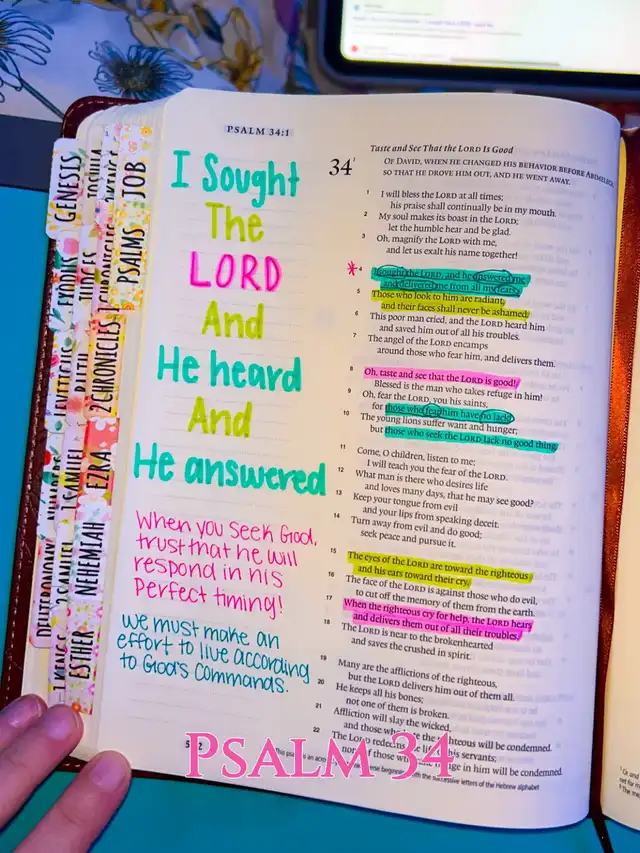 PSALM 34:1
I Sought
The
LORD
And
He heard
And
He answered
When you seek God,
trust that he will
respond in his
Perfect timing!
we must make an
effort to live according
to God's Commands.
GENESIS
EXODUS
LEVITICUS
NUMBERS
DEUTERONOMY
JOSHUA
JUDGES
RUTH
1 SAMUEL
2 SAMUEL
1 KINGS
2 KINGS
1 CHRONICLES
2 CHRONICLES
EZRA
NEHEMIAH
ESTHER
JOB
PSALMS
Taste and See That the LORD Is Good
34 OF DAVID, WHEN HE CHANGED HIS BEHAVIOR BEFORE ABIMELECH,
SO THAT HE DROVE HIM OUT, AND HE WENT AWAY.
1 I will bless the LORD at all times;
his praise shall continually be in my mouth.
2 My soul makes its boast in the LORD;
let the humble hear and be glad.
3 Oh, magnify the LORD with me,
and let us exalt his name together!
* 4 I sought the LORD, and he answered me
and delivered me from all my fears.
5 Those who look to him are radiant,
and their faces shall never be ashamed.
6 This poor man cried, and the LORD heard him
and saved him out of all his troubles.
7 The angel of the LORD encamps
around those who fear him, and delivers them.
8 Oh, taste and see that the LORD is good!
Blessed is the man who takes refuge in him!
9 Oh, fear the LORD, you his saints,
for those who fear him have no lack!
10 The young lions suffer want and hunger;
but those who seek the LORD lack no good thing.
11 Come, O children, listen to me;
I will teach you the fear of the LORD.
12 What man is there who desires life
and loves many days, that he may see good?
13 Keep your tongue from evil
and your lips from speaking deceit.
14 Turn away from evil and do good;
seek peace and pursue it.
15 The eyes of the LORD are toward the righteous
and his ears toward their cry.
16 The face of the LORD is against those who do evil,
to cut off the memory of them from the earth.
17 When the righteous cry for help, the LORD hears
and delivers them out of all their troubles.
18 The LORD is near to the brokenhearted
and saves the crushed in spirit.
19 Many are the afflictions of the righteous,
but the LORD delivers him out of them all.
20 He keeps all his bones;
not one of them is broken.
21 Affliction will slay the wicked,
and those who the righteous will be condemned.
22 The LORD redeems the life of his servants;
none of those who refuge in him will be condemned.
This psalm is an acrostic beginning with the successive letters of the Hebrew alphabet
PSALM 34